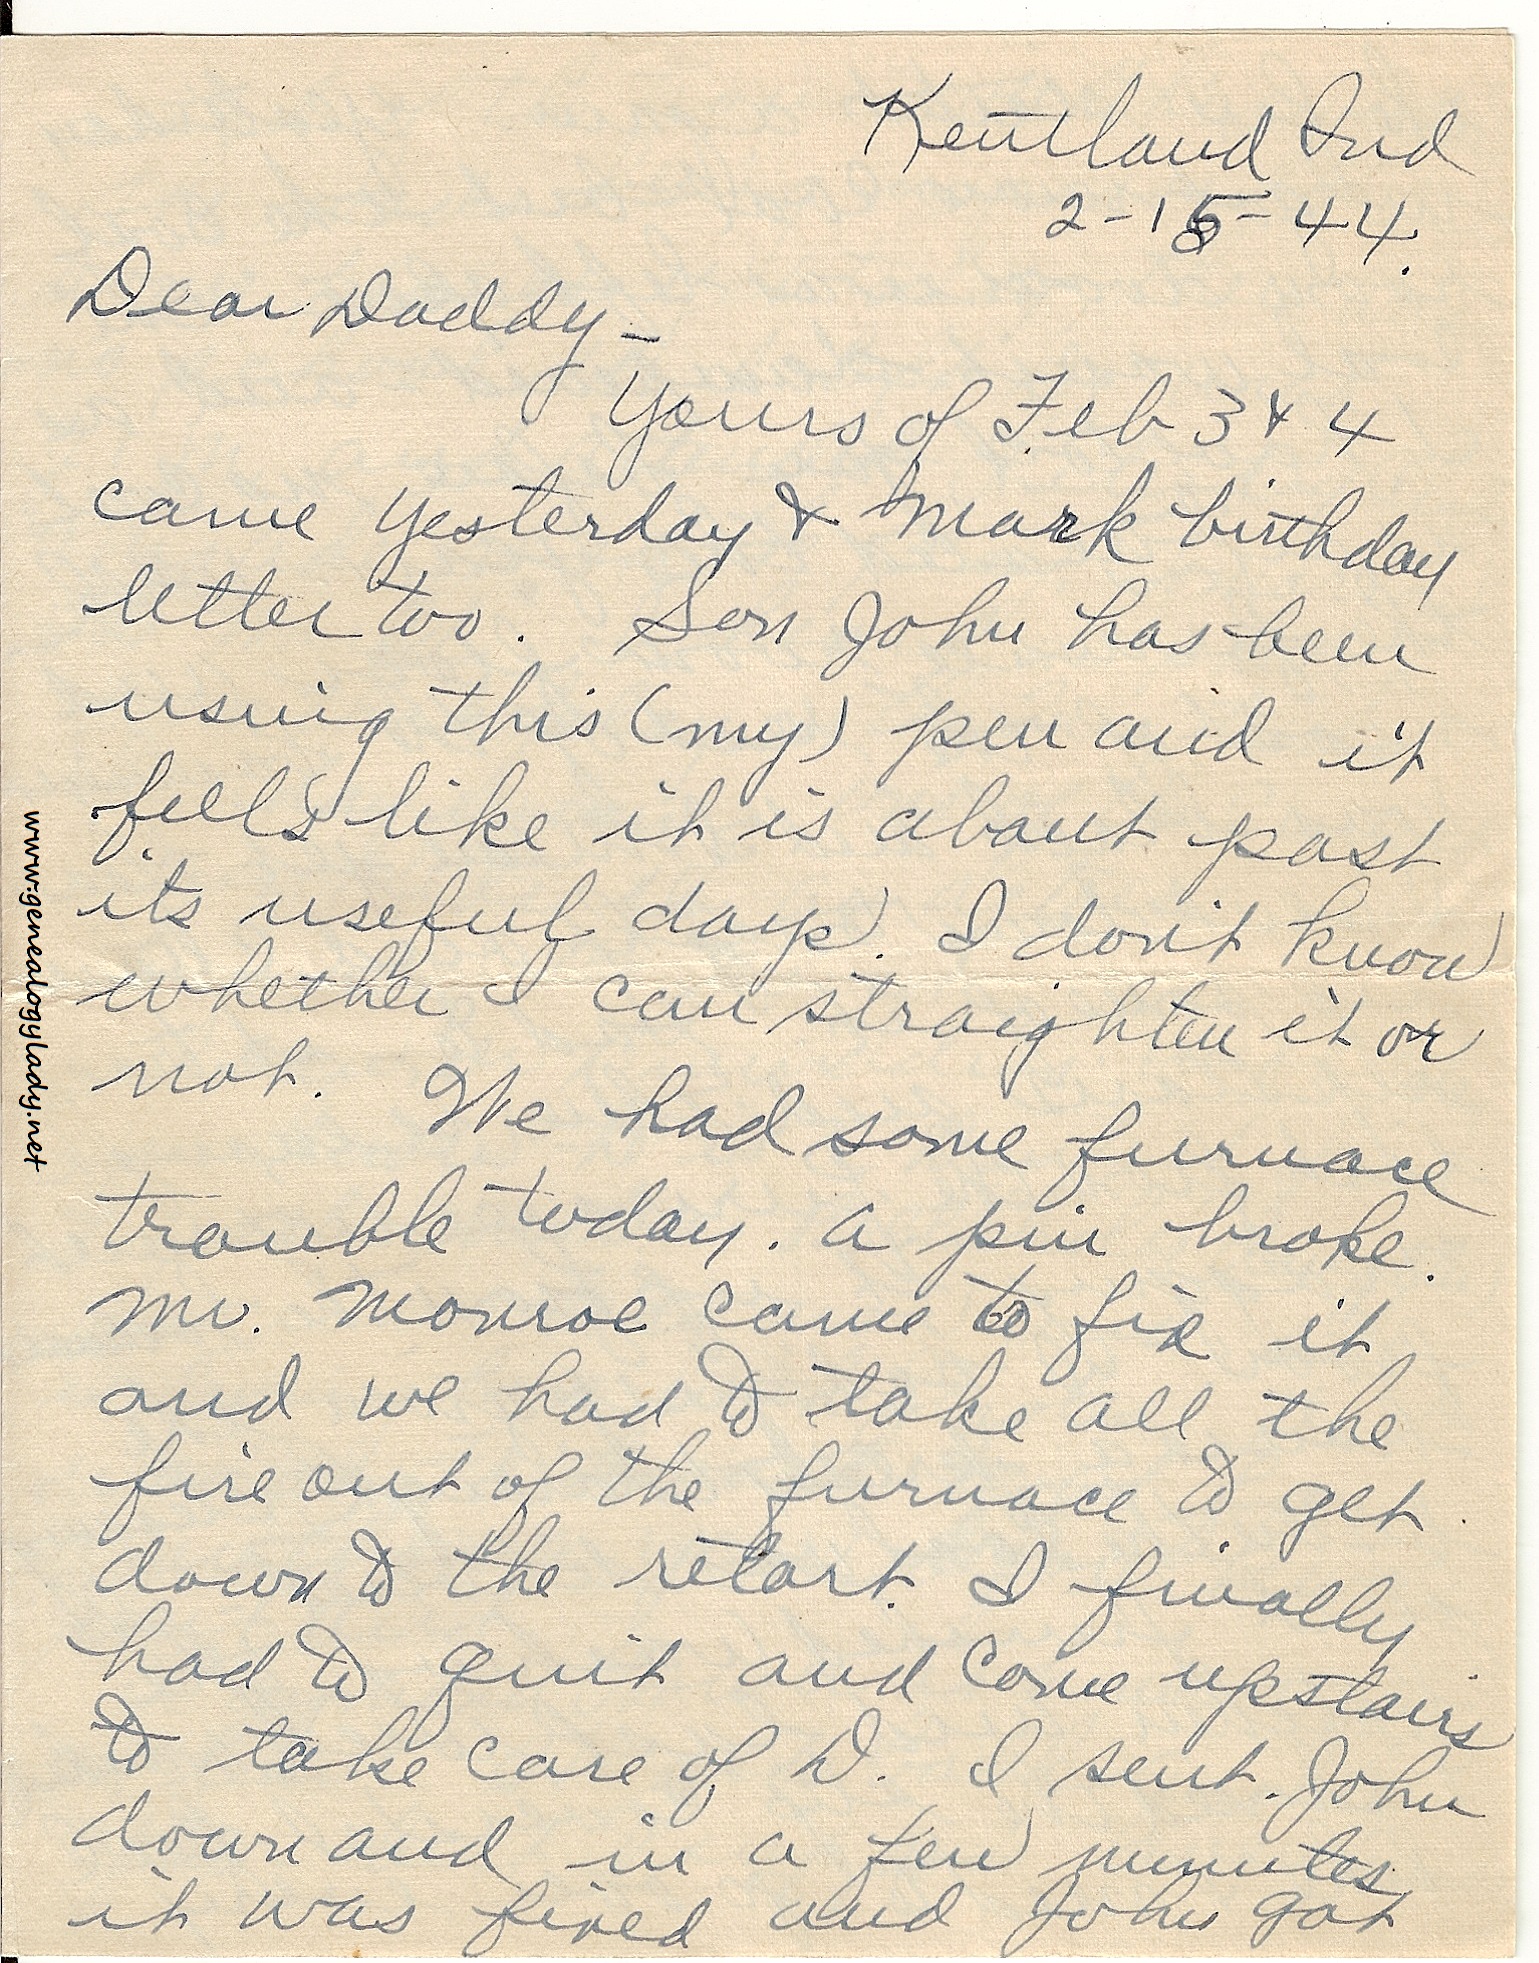 Kentland Ind
2-15-44.
Dear Daddy -
Yours of Feb 3 & 4
came yesterday & Mark birthday
letter too. Son John has been
using this (my) pen and it
feels like it is about past
its useful days. I don't know
whether I can straighten it or
not. We had some furnace
trouble today. A pin broke.
Mr. Monroe came to fix it
and we had to take all the
fire out of the furnace to get
down to the retort. I finally
had to quit and come upstairs
to take care of D. I sent John
down and in a few minutes
it was fixed and John got
www.genealogylady.net